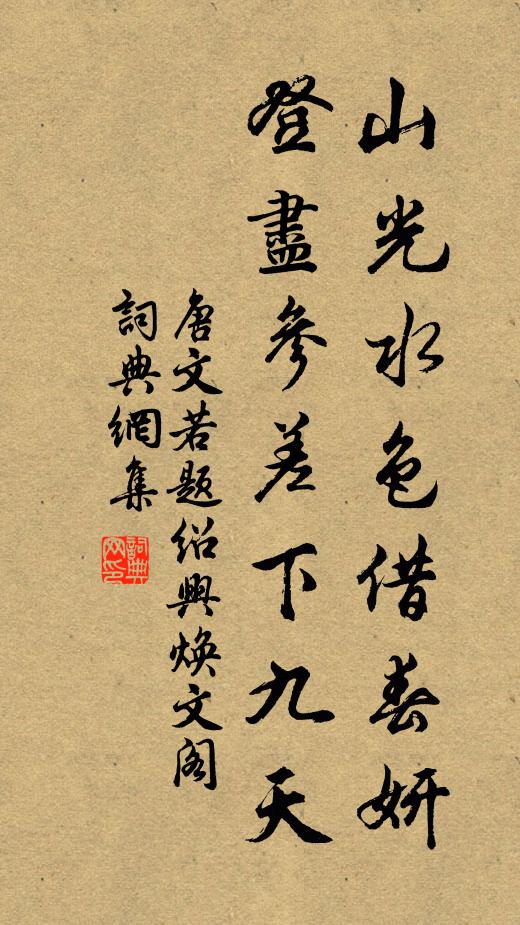 山光水色借春妍
登盡參差下九天
唐文若題紹興煥文閣
詞典網集
詞典網印